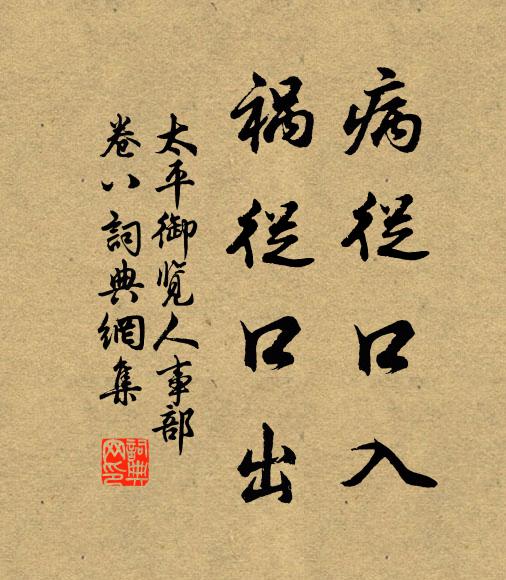 病從口入
祸從口出
太平御覽人事部
卷八詞典網集
詞典网印